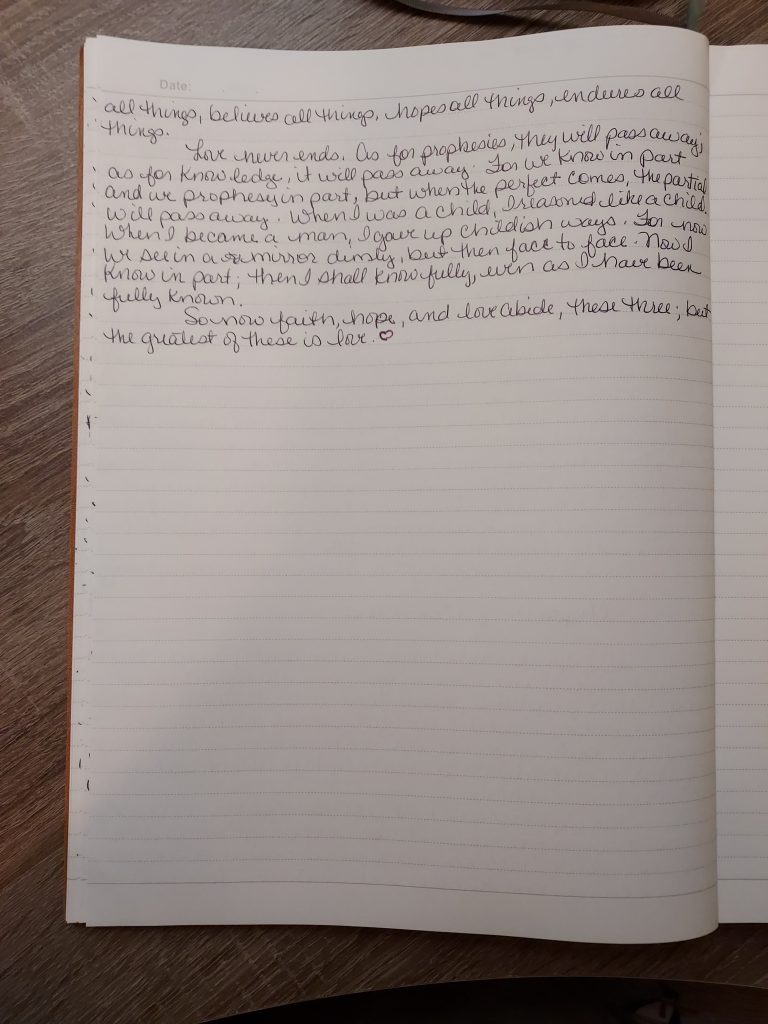 Date:
all things, believes all things, hopes all things, endures all
things.
Love never ends. As for prophesies, they will pass away;
as for knowledge, it will pass away. For we know in part
and we prophesy in part, but when the perfect comes, the partial
will pass away. When I was a child, I reasoned like a child.
When I became a man, I gave up childish ways. For now
we see in a mirror dimly, but then face to face. Now I
know in part; then I shall know fully, even as I have been
fully known.
So now faith, hope, and love abide, these three; but
the greatest of these is love.